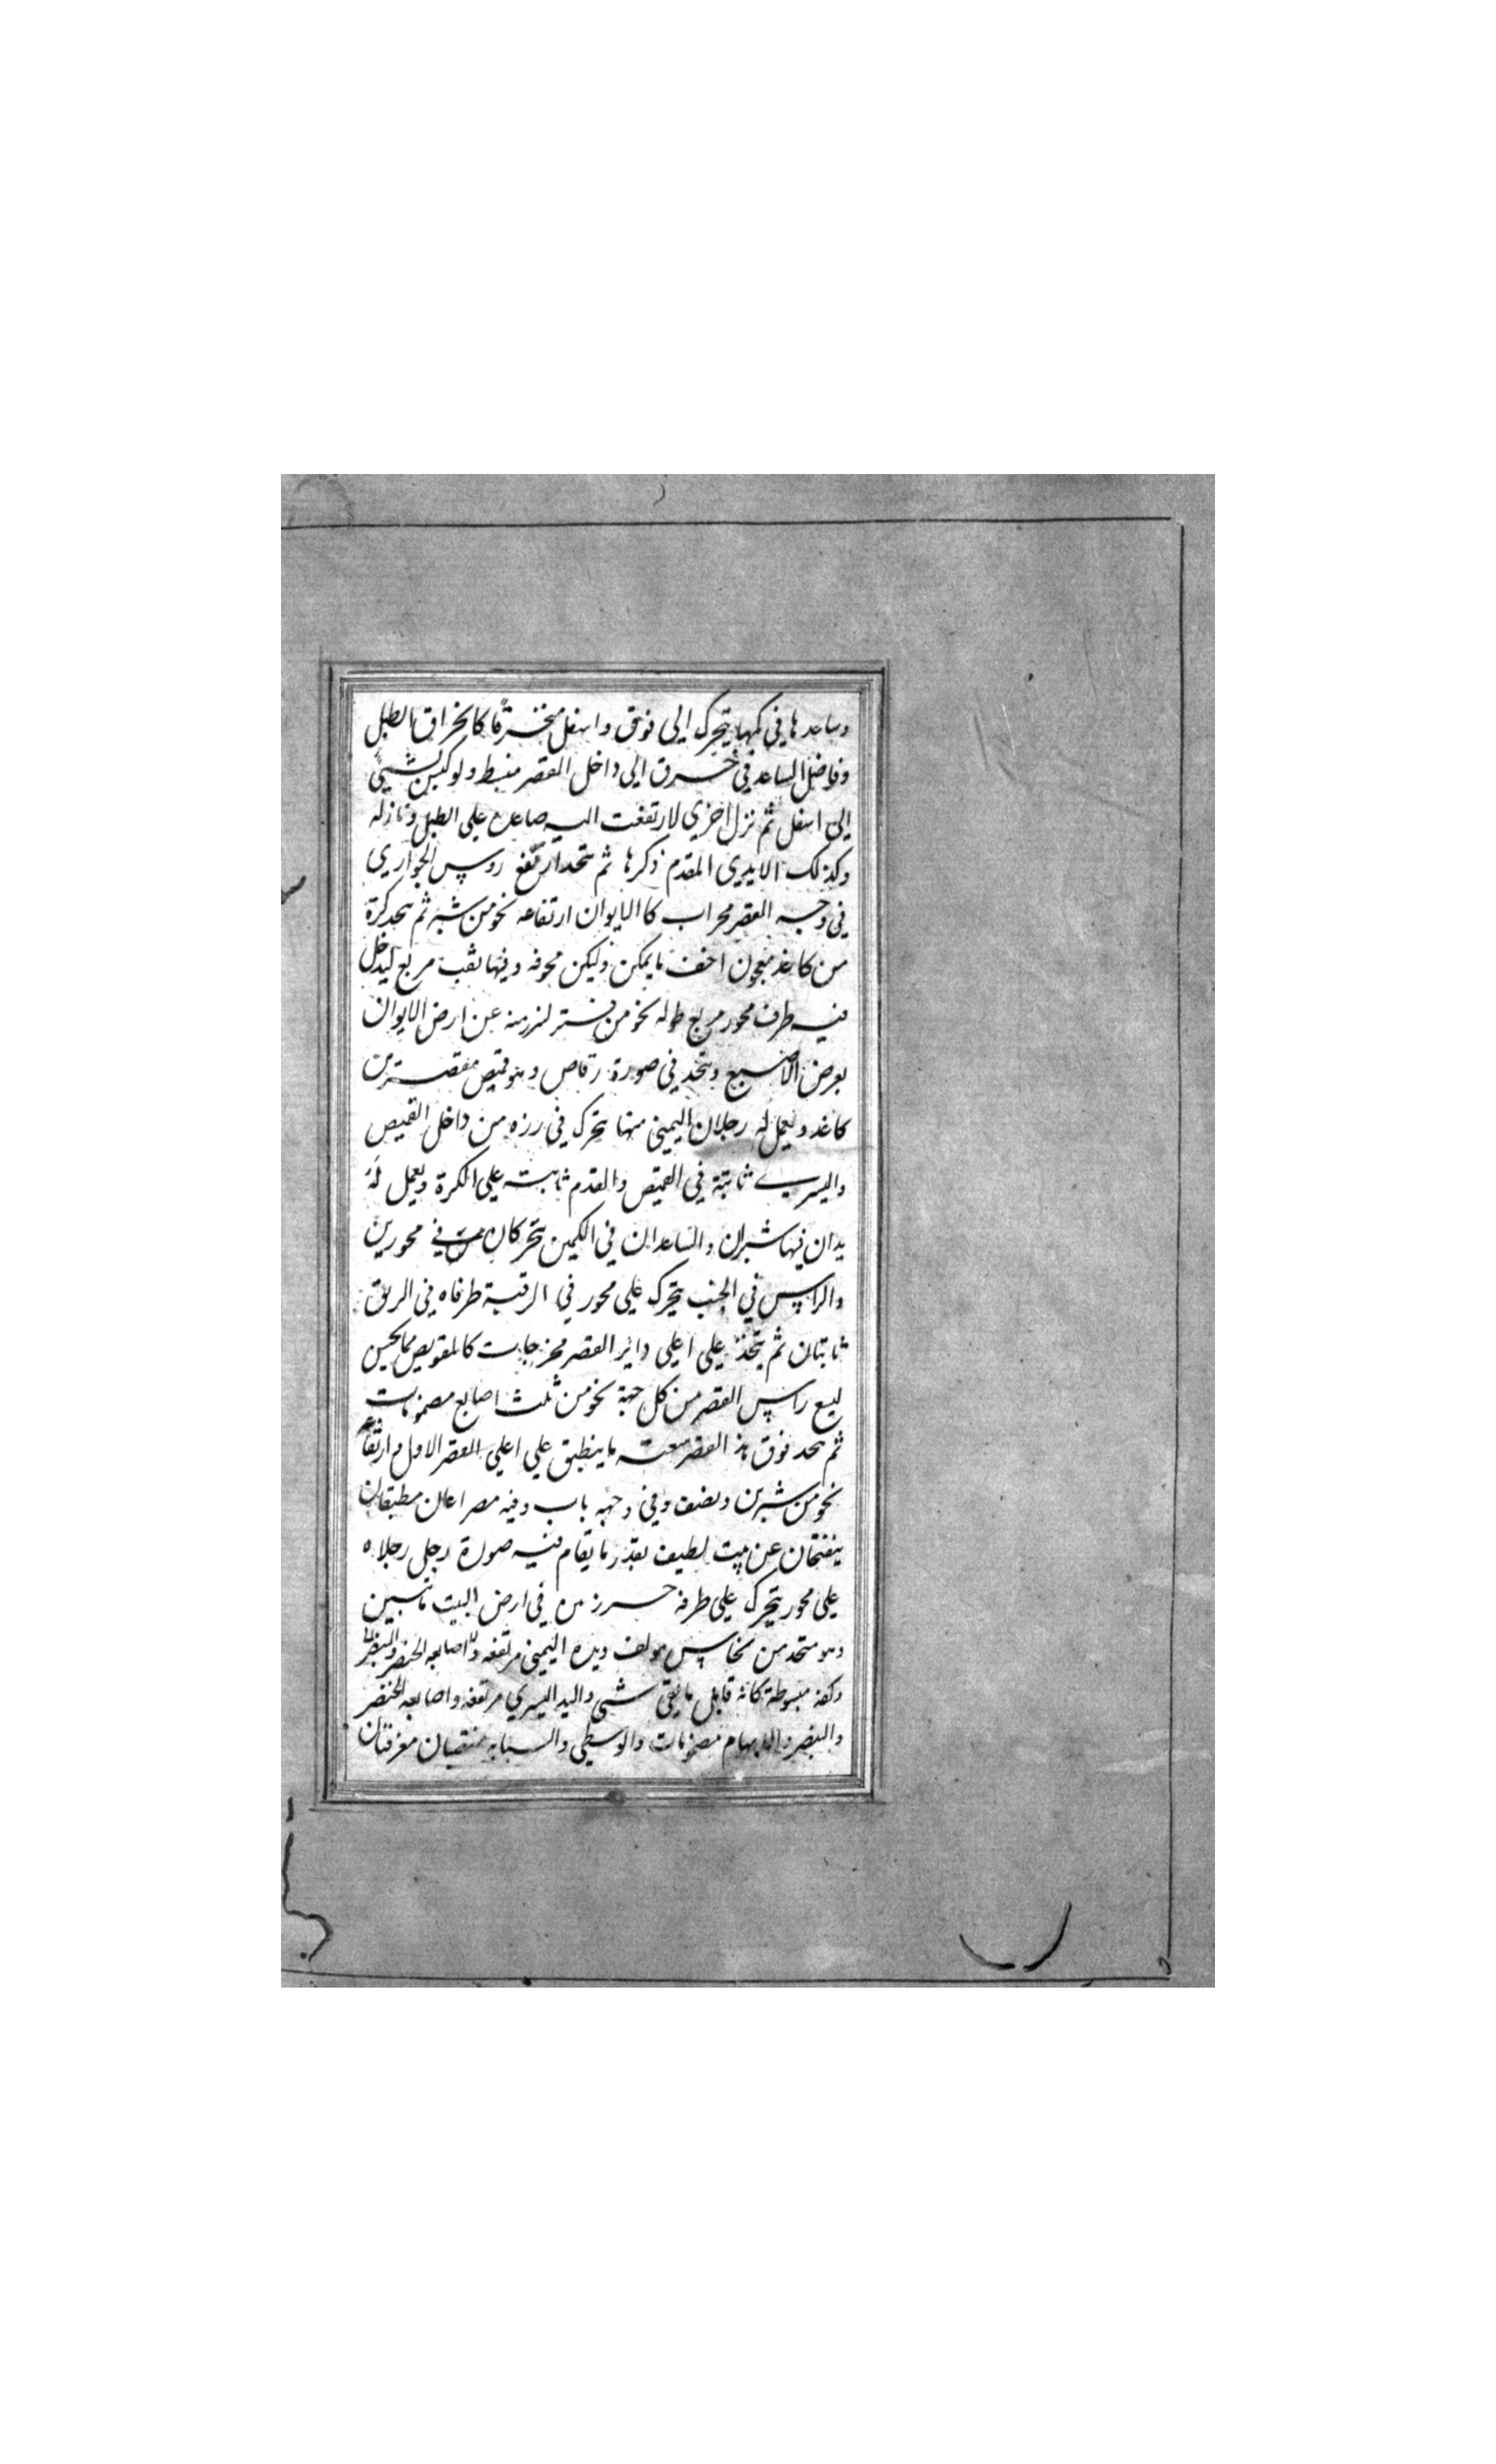 وساعدها في كمها يتحرك الى فوق واسفل منخرقا كانخراق الطبل
وفاضل الساعد في خرق الى داخل القصر منبسط ولو كبس بشيئ
الى اسفل ثم نزل اخرى لارتفعت اليه صاعدة على الطبل ونازله
وكذلك الايدي المقدم ذكرها ثم يتخذ ارتفع روس الجواري
في وجه القصر محراب كالايوان ارتفاعه نحو من شبر ثم يتخذ كرة
من كاغذ معجون اخف ما يمكن وليكن مجوفه وفيها ثقب مربع ليدخل
فيه طرف محور مربع طوله نحو من فتر عن ارض الايوان
بعرض الاصبع ويتخذ في صورة رقاص وهو قميص مقصر من
كاغد ويعمل له رجلان اليمنى منها يتحرك في رزه من داخل القميص
واليسرى ثابتة في القميص والقدم ثابته على الكرة ويعمل له
يدان فيها شبران والساعدان في الكمين يتحركان في محورين
والراس في الجنب يتحرك على محور في الرقبة طرفاه في الريق
ثابتان ثم يتخذ على اعلى داير القصر مخرجات كالمقويص مما يحسن
ليسع راس القصر من كل جهة نحو من ثلث اصابع مضمومات
ثم يتخذ فوق هذ القصر سعته ما ينطبق على اعلى القصر الاول وارتفاعه
نحو من شبرين ونصف وفي وجهه باب وفيه مصراعان مطبقان
ينفتحان عن بيت لطيف بقدر ما يقام فيه صورة رجل رجلاه
على محور يتحرك على طرفه في ارض البيت ثابتين
وهو متخذ من نحاس مولف ويده اليمنى مرتفعه واصابعه الخنصر والبنصر
وكفه مبسوطة كانه قابل ما يقى شي واليد اليسرى مرتفعه واصابعه الخنصر
والبنصر والابهام مضمومات والوسطى والسبابه منتصبان مفرقتان